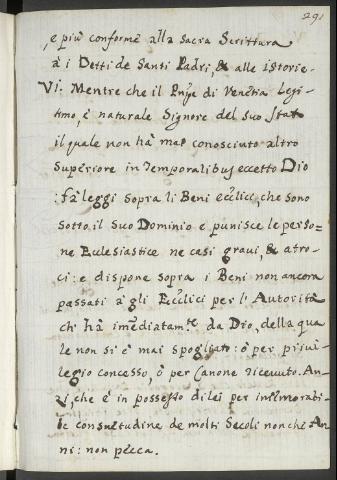 291
, e più conforme alla Sacra Scrittura
à i Detti de Santi Padri, & alle istorie.
VI. Mentre che il Prñpe di Venetia legi-
timo, è naturale Signore del Suo Stato
il quale non hà mai conosciuto altro
Superiore in Temporalibus eccetto Dio
: fà leggi sopra li Beni eccl̃ici, che sono
sotto il suo Dominio e punisce le perso-
ne Eclesiastice ne casi graui, & atro-
ci: e dispone sopra i Beni non ancora
passati à gli Eccl̃ici per l'Autorità
ch'hà imediatam.te da Dio, della qua
le non si è mai spogliato: ò per priui-
legio concesso, ò per Canone riceuuto. An-
zi, che è in possesso di lei per immemorabi-
le consuetudine de molti Secoli non chè An
ni: non pecca.